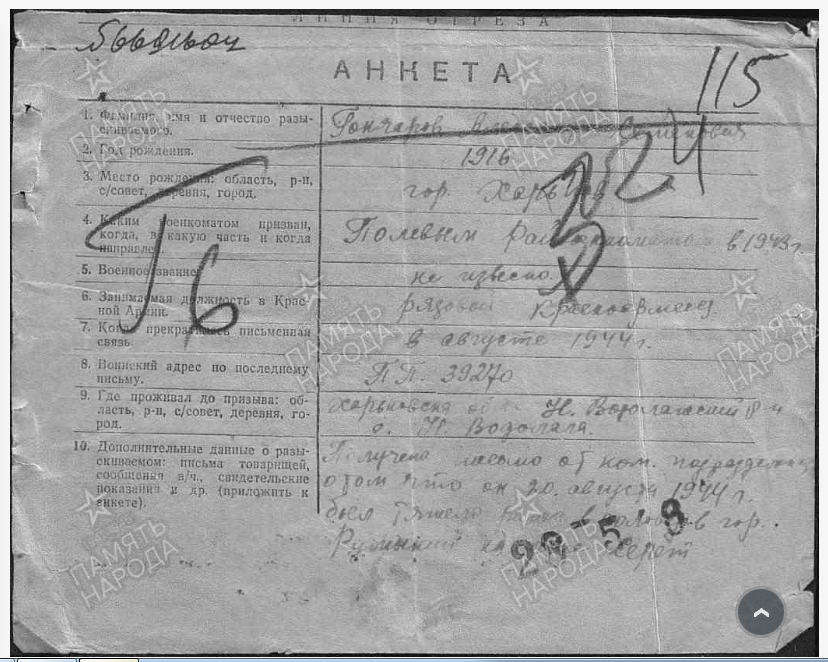 ЛИНИЯ ОТРЕЗА
АНКЕТА
115
1. Фамилия, имя и отчество разы-
скиваемого.
Гончаров Семенович
2. Год рождения.
1916
3. Место рождения: область, р-н,
с/совет, деревня, город.
гор. Харьков
4. Каким военкоматом призван,
когда, в какую часть и когда
направлен.
Полевым в 1943 г.
5. Военное звание.
не известно.
6. Занимаемая должность в Крас-
ной Армии.
рядовой Красноармеец
7. Когда прекратилась письменная
связь.
в августе 1944 г.
8. Воинский адрес по последнему
письму.
П.П. 39270
9. Где проживал до призыва: об-
ласть, р-н, с/совет, деревня, го-
род.
Харьковская обл. Н. Водолажский р-н
с. Н. Водолага.
10. Дополнительные данные о разы-
скиваемом: письма товарищей,
сообщения в/ч., свидетельские
показания и др. (приложить к
анкете).
Получено письмо от ком. подразделения
о том что он 20. августа 1944 г.
был тяжело ранен в гор.
16
ПАМЯТЬ
НАРОДА
ПАМЯТЬ
НАРОДА
ПАМЯТЬ
НАРОДА
ПАМЯТЬ
НАРОДА
ПАМЯТЬ
НАРОДА
ПАМЯТЬ
НАРОДА